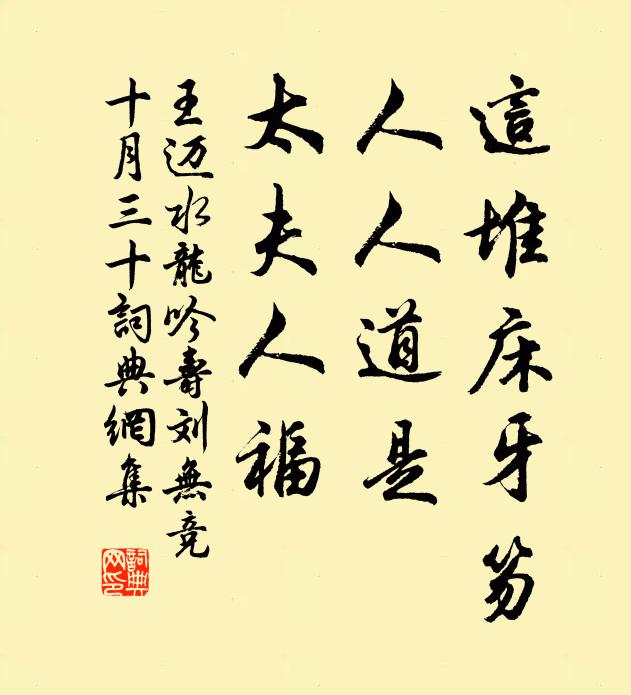 這堆床牙笏
人人道是
太夫人福
王迈水龍吟壽刘無竞
十月三十詞典網集
詞典網印